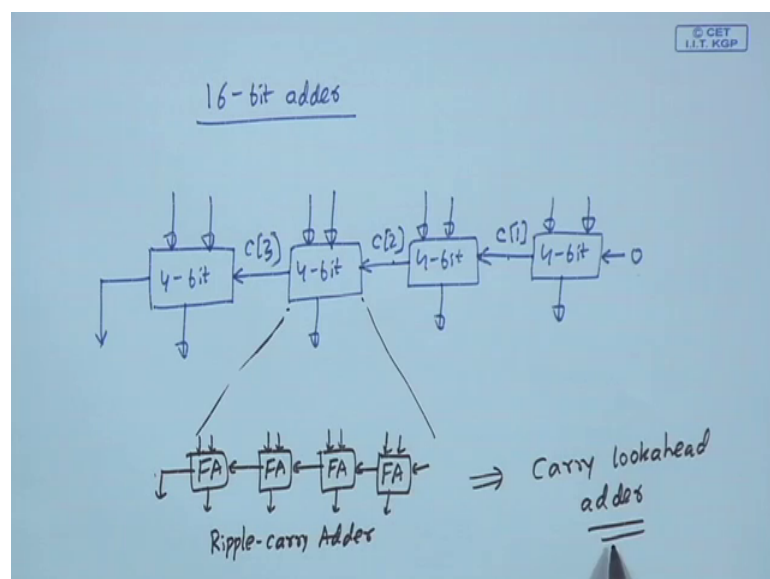 © CET
I.I.T. KGP
16-bit adder
c[3] c[2] c[1]
4-bit 4-bit 4-bit 4-bit 0
FA FA FA FA
Ripple-carry Adder
⇒ Carry lookahead
adder